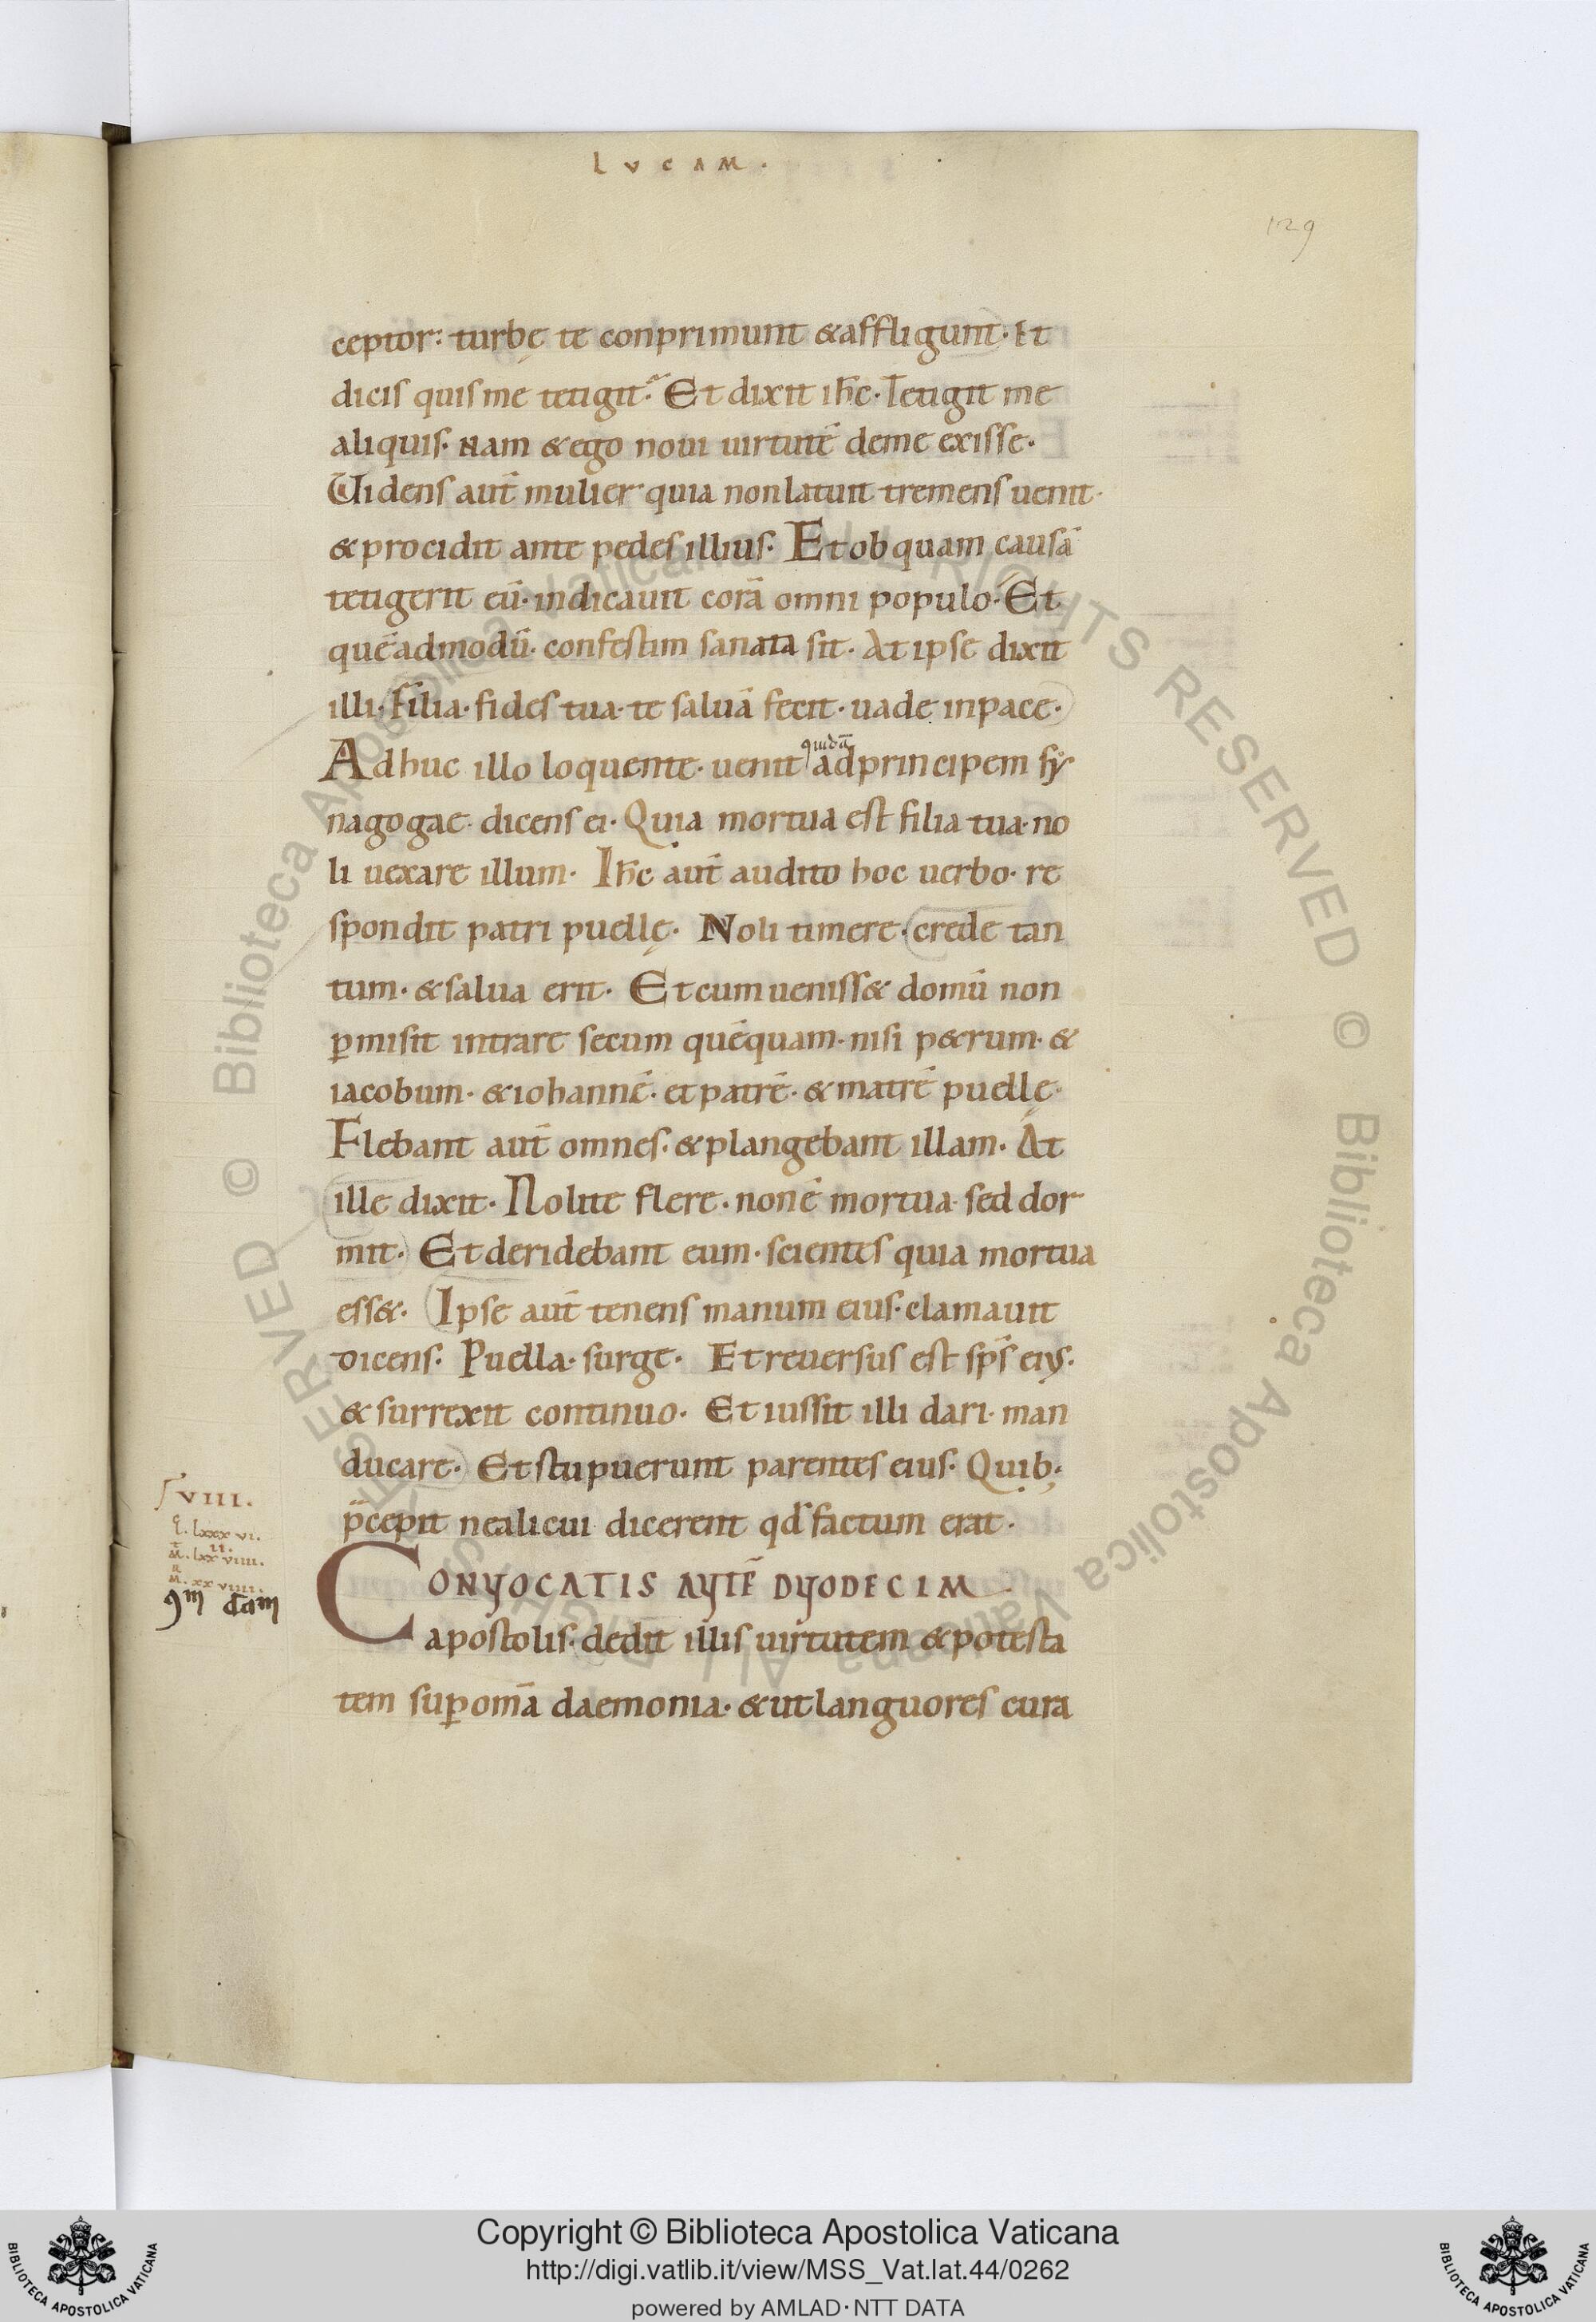 LVCAM.
129
ceptor: turbę te conprimunt & affligunt. Et
dicis quis me tetigit. Et dixit ih̅c. Tetigit me
aliquis. Nam & ego novi uirtutē de me exisse.
Uidens aut̅ mulier quia non latuit tremens uenit.
& procidit ante pedes illius. Et ob quam causā
tetigerit eū. indicauit corā omni populo. Et
quēadmodū. confestim sanata sit. At ipse dixit
illi. Filia. fides tua. te saluā fecit. uade in pace.
Adhuc illo loquente. uenit quidā ad principem sy
nagogae. dicens ei. Quia mortua est filia tua. no
li uexare illum. Ih̅c aut̅ audito hoc uerbo. re
spondit patri puellę. Noli timere. crede tan
tum. & salua erit. Et cumueniss& domū non
p̱misit intrare secum quēquam. nisi p&rum. &
iacobum. & iohannē. et patrē. & matrē puellę.
Flebant aut̅ omnes. & plangebant illam. At
ille dixit. Nolite flere. non ē mortua sed dor
mit. Et deridebant eum. scientes quia mortua
ess&. Ipse aut̅ tenens manum eius. clamauit
dicens. Puella. surge. Et reuersus est sp̅s eiꝰ.
& surrexit continuo. Et iussit illi dari. man
ducare. Et stupuerunt parentes eius. Quib;
p̅cepit ne alicui dicerent qd̅ factum erat.
VIII.
L. lxxxvi.
II.
M. lxxviiii.
M. xxviiii.
CONVOCATIS AVTĒ DVODECIM
apostolis. dedit illis uirtutem & potesta
tem sup̱ om̅a daemonia. & ut languores cura
Copyright © Biblioteca Apostolica Vaticana
http://digi.vatlib.it/view/MSS_Vat.lat.44/0262
powered by AMLAD·NTT DATA
BIBLIOTECA APOSTOLICA VATICANA
BIBLIOTECA APOSTOLICA VATICANA
© Biblioteca Apostolica Vaticana ALL RIGHTS RESERVED © Biblioteca Apostolica Vaticana ALL RIGHTS RESERVED